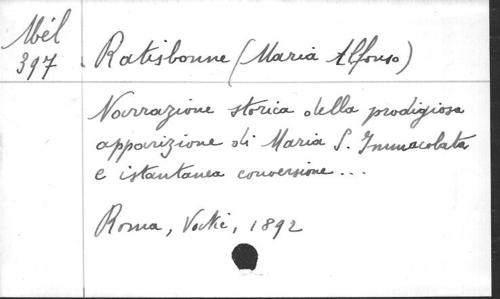 Mél
397
Ratisbonne (Maria Alfonso)
Narrazione storica della prodigiosa
apparizione di Maria S. Immacolata
e istantanea conversione ...
Roma, 1892